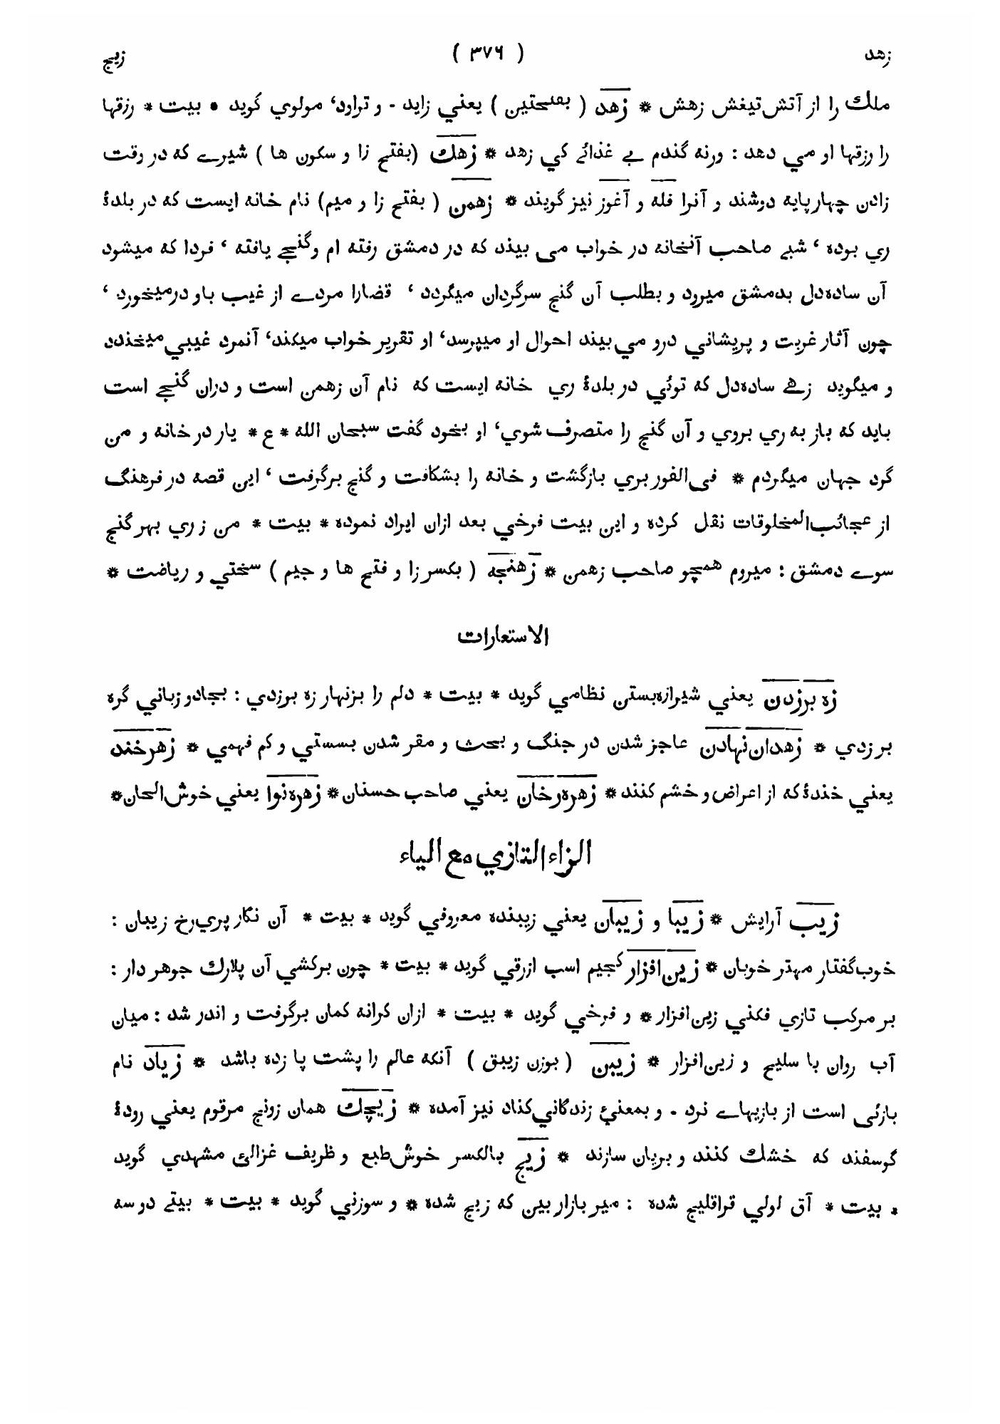 زهد ( ۳۷۶ ) زیچ
ملك را از آتش تیغش زهش * زَهَد ( بفتحتین ) یعني زاید - و تراود، مولوي گوید * بیت * رزقها
را رزقها او مي دهد : ورنه گندم بے غذائے کي زهد * زَهك (بفتح زا و سكون ها ) شیرے که در وقت
زادن چهارپایه دوشند و آنرا فله و آغوز نیز گویند * زهمن ( بفتح زا و میم) نام خانه ایست که در بلدۀ
ري بوده ، شبے صاحب آنخانه در خواب مي بیند که در دمشق رفته ام وگنجے یافته ، فردا که میشود
آن ساده‌دل بدمشق میرود و بطلب آن گنج سرگردان میگردد ، قضارا مردے از غیب باو درمیخورد ،
چون آثار غربت و پریشاني درو مي‌بیند احوال او میپرسد، او تقریر خواب میکند، آنمرد غیبي میخندد
و میگوید زهے ساده‌دل که توئي در بلدۀ ري خانه ایست که نام آن زهمن است و دران گنجے است
باید که باز به ري بروي و آن گنج را متصرف شوي، او بخود گفت سبحان الله * ع * یار در خانه و من
گرد جهان میگردم * في‌الفور بري بازگشت و خانه را بشكافت و گنج برگرفت ، این قصه در فرهنگ
از عجائب‌المخلوقات نقل کرده و این بیت فرخي بعد ازان ایراد نموده * بیت * من ز ري بهر گنج
سوے دمشق : میروم همچو صاحب زهمن * زِهَنجه ( بكسر زا و فتح ها و جیم ) سختي و ریاضت *
الاستعارات
زه برزدن یعني شیرازه‌بستن نظامي گوید * بیت * دلم را بزنهار زه برزدي : بجادو زباني گره
برزدي * زهدان نهادن عاجز شدن در جنگ و بحث و مقر شدن بسستي و کم فهمي * زهرخند
یعني خندۀ که از اعراض و خشم کنند * زهره‌رخان یعني صاحب حسنان * زهره‌نوا یعني خوش‌الحان *
الزاء التازي مع الیاء
زیب آرایش * زیبا و زیبان یعني زیبنده معروفي گوید * بیت * آن نگار پري‌رخ زیبان :
خوب‌گفتار مهتر خوبان * زین‌افزار کجیم اسب ازرقي گوید * بیت * چون برکشي آن پلارك جوهر دار :
بر مرکب تازي فکني زین‌افزار * و فرخي گوید * بیت * ازان کرانه کمان برگرفت و اندر شد : میان
آب روان با سلیح و زین‌افزار * زیبن ( بوزن زیبق ) آنکه عالم را پشت پا زده باشد * زیاد نام
بازئی است از بازیهاے نرد - و بمعنیٔ زندگاني‌کناد نیز آمده * زیچك همان زونج مرقوم یعني رودۀ
گوسفند که خشك کنند و بریان سازند * زیچ بالکسر خوش‌طبع و ظریف غزالیٔ مشهدي گوید
* بیت * آق لولي قراقلیچ شده : میر بازار بین که زیچ شده * و سوزني گوید * بیت * بیتے دو سه